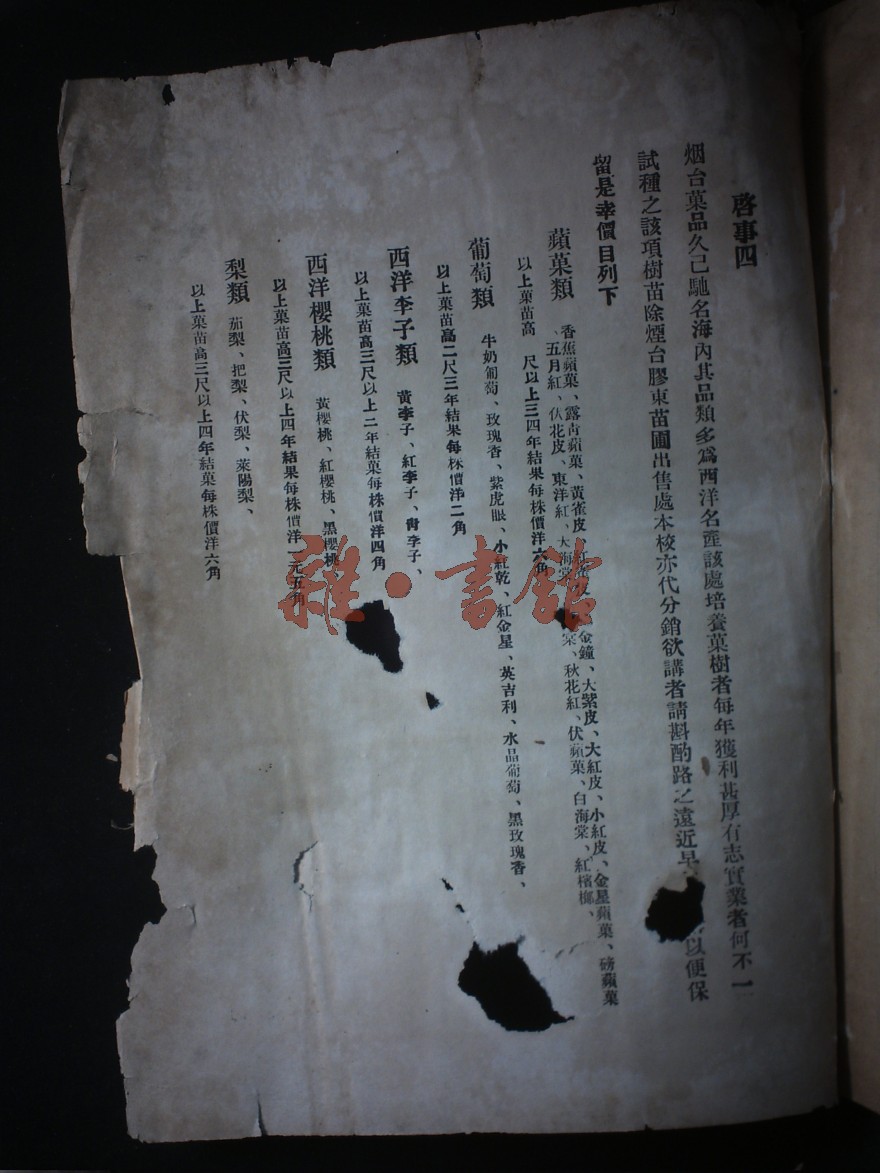 啓事四
烟台菓品久已馳名海內其品類多爲西洋名産該處培養菓樹者每年獲利甚厚有志實業者何不一
試種之該項樹苗除煙台膠東苗圃出售處本校亦代分銷欲講者請斟酌路之遠近早以便保
留是幸價目列下
蘋菓類
香蕉蘋菓、露靑蘋菓、黃雀皮、紅雀皮、金鐘、大紫皮、大紅皮、小紅皮、金星蘋菓、磅蘋菓
、五月紅、伏花皮、東洋紅、大海棠、棠、秋花紅、伏蘋菓、白海棠、紅檳榔、
以上菓苗高 尺以上三四年結果每株價洋六角
葡萄類
牛奶葡萄、玫瑰香、紫虎眼、小紅乾、紅金星、英吉利、水晶葡萄、黑玫瑰香、
以上菓苗高二尺三年結果每株價洋二角
西洋李子類
黃李子、紅李子、靑李子、
以上菓苗高三尺以上二年結菓每株價洋四角
西洋櫻桃類
黃櫻桃、紅櫻桃、黑櫻桃
以上菓苗高三尺以上四年結果每株價洋一元五角
梨類
茄梨、把梨、伏梨、萊陽梨、
以上菓苗高三尺以上四年結菓每株價洋六角
雜·書館